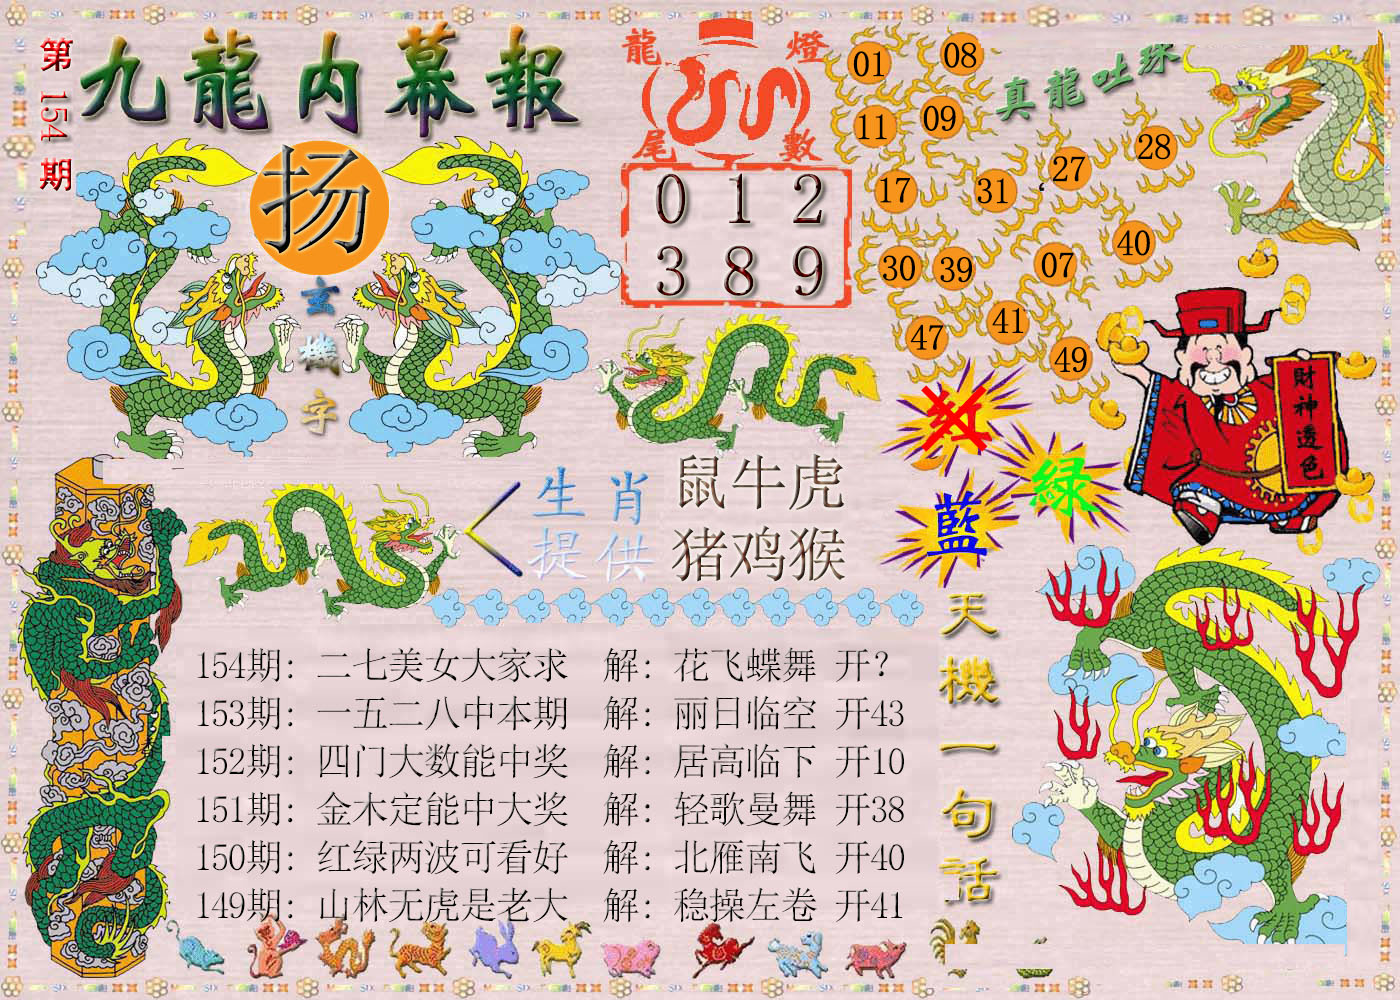 第154期
九龍内幕報
扬
玄機字
龍燈
尾數
0 1 2
3 8 9
真龍吐珠
01 08
11 09
17 31 27 28
30 39 07 40
47 41 49
財神透色
红
绿
藍
生肖 鼠牛虎
提供 猪鸡猴
天機一句話
154期：二七美女大家求 解：花飞蝶舞 开?
153期：一五二八中本期 解：丽日临空 开43
152期：四门大数能中奖 解：居高临下 开10
151期：金木定能中大奖 解：轻歌曼舞 开38
150期：红绿两波可看好 解：北雁南飞 开40
149期：山林无虎是老大 解：稳操左卷 开41